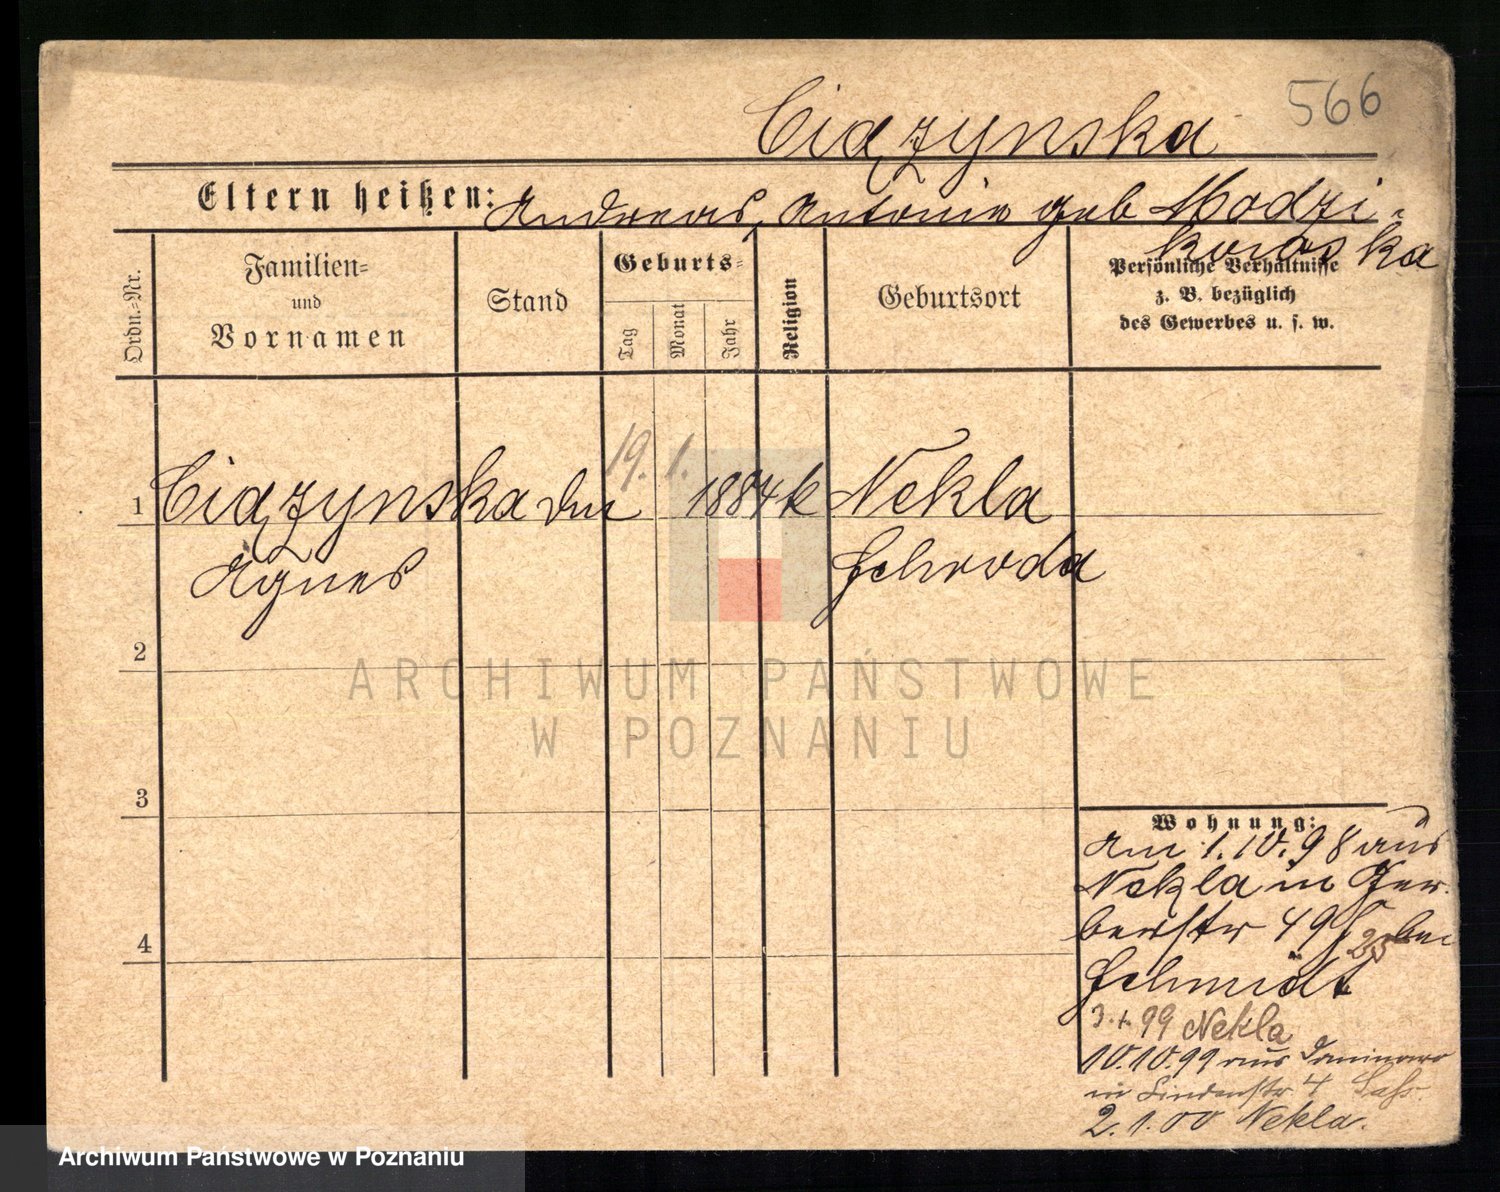 566
Ciążynska
Eltern heißen: Andreas, Antonie geb Modzi-
kowska
Ordn.=Nr.
Familien=
und
Vornamen
Stand
Geburts=
Tag
Monat
Jahr
Religion
Geburtsort
Persönliche Verhältnisse
z. B. bezüglich
des Gewerbes u. s. w.
19. 1.
1 Ciążynska 1884 k Nekla
Agnes Schroda
2
3
4
ARCHIWUM PAŃSTWOWE
W POZNANIU
Wohnung:
Am 1.10.98 aus
Nekla in Ger-
berstr 49 bei
Schmidt
99 Nekla
10.10.99 aus
in Lindenstr 4
2.1.00 Nekla.
Archiwum Państwowe w Poznaniu